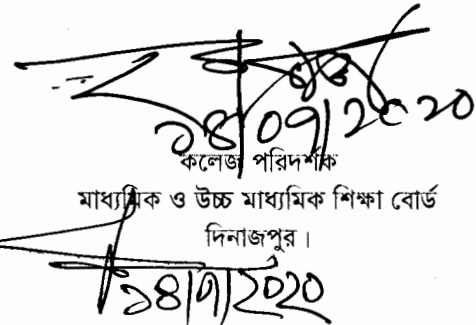 ১৪/০৭/২০২০
কলেজ পরিদর্শক
মাধ্যমিক ও উচ্চ মাধ্যমিক শিক্ষা বোর্ড
দিনাজপুর।
১৪/৭/২০২০